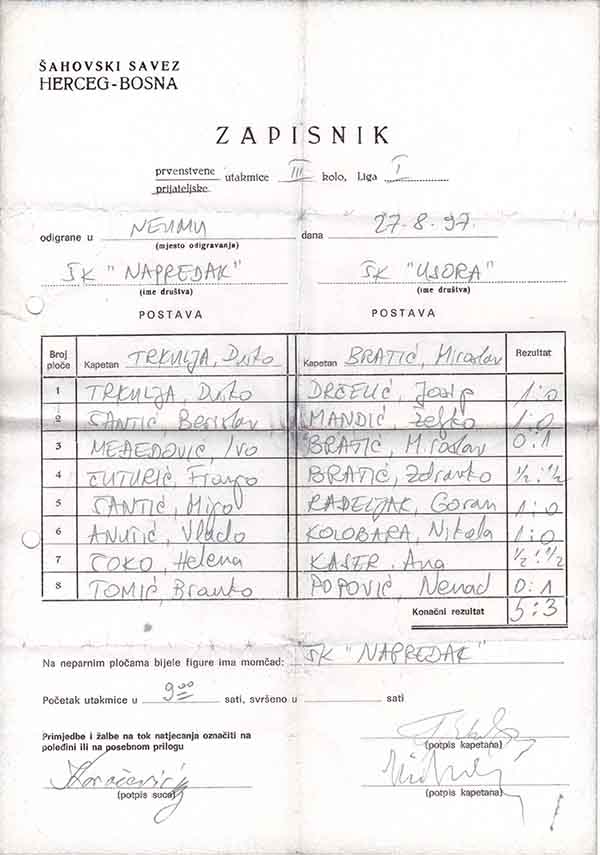 ŠAHOVSKI SAVEZ
HERCEG-BOSNA
ZAPISNIK
prvenstvene
prijateljske utakmice III kolo, Liga I
odigrane u NEUMU dana 27.8.97.
(mjesto odigravanja)
ŠK "NAPREDAK" ŠK "USORA"
(ime društva) (ime društva)
POSTAVA POSTAVA
Broj ploče Kapetan TRKULJA, Duško Kapetan BRATIĆ, Miroslav Rezultat
1 TRKULJA, Duško DRČELIĆ, Josip 1:0
2 SANTIĆ, Berislav MANDIĆ, Željko 1:0
3 MEĐEDOVIĆ, Ivo BRATIĆ, Miroslav 0:1
4 ČUTURIĆ, Franjo BRATIĆ, Zdravko ½:½
5 SANTIĆ, Miro RADELJAK, Goran 1:0
6 ANUTIĆ, Vlado KOLOBARA, Nikola 1:0
7 ČOKO, Helena KASER, Ana ½:½
8 TOMIĆ, Branko POPOVIĆ, Nenad 0:1
Konačni rezultat 5:3
Na neparnim pločama bijele figure ima momčad: ŠK "NAPREDAK"
Početak utakmice u 9⁰⁰ sati, svršeno u sati
Primjedbe i žalbe na tok natjecanja označiti na
poleđini ili na posebnom prilogu
(potpis kapetana)
(potpis suca) (potpis kapetana)